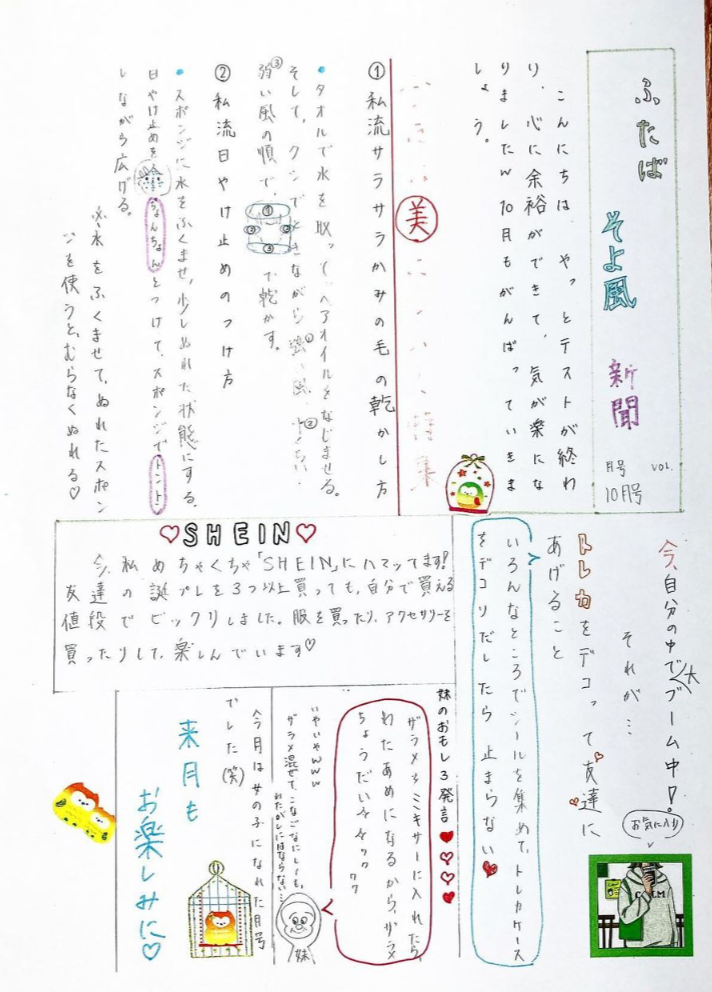 ふたば
そよ風
新聞
月号 VOL.
10月号
こんにちは やっとテストが終わ
り、心に余裕ができて、気が楽にな
りましたw 10月もがんばっていきま
しょう。
美
特集
①私流サラサラかみの毛の乾かし方
・タオルで水を取って、ヘアオイルをなじませる。
そして、クシでときながら強い風
弱い風の順で、
① ② ② ③
で乾かす。
②私流日やけ止めのつけ方
・スポンジに水をふくませ、少しぬれた状態にする。
日やけ止めを
ちょんちょん
とつけて、スポンジで
トントン
しながら広げる。
※水をふくませて、ぬれたスポン
ジを使うと、むらなくぬれる♡
今、自分の中で大ブーム中!
それが…
トレカをデコって友達に
あげること
お気に入り
いろんなところでシールを集めて、トレカケース
をデコりだしたら止まらない
♡SHEIN♡
今、私めちゃくちゃ「SHEIN」にハマってます!
友達の誕プレを3つ以上買っても、自分で買える
値段でビックリしました。服を買ったり、アクセサリーを
買ったりして、楽しんでいます♡
妹のおもしろ発言
ザラメをミキサーに入れたら、
わたあめになるから、ザラメ
ちょうだい
ククク
いやいやwww
ザラメ混ぜて、こなごなにしても、
わたがしにはならない…
妹
今月は女の子になれた月号
でした(笑)
来月も
お楽しみに♡